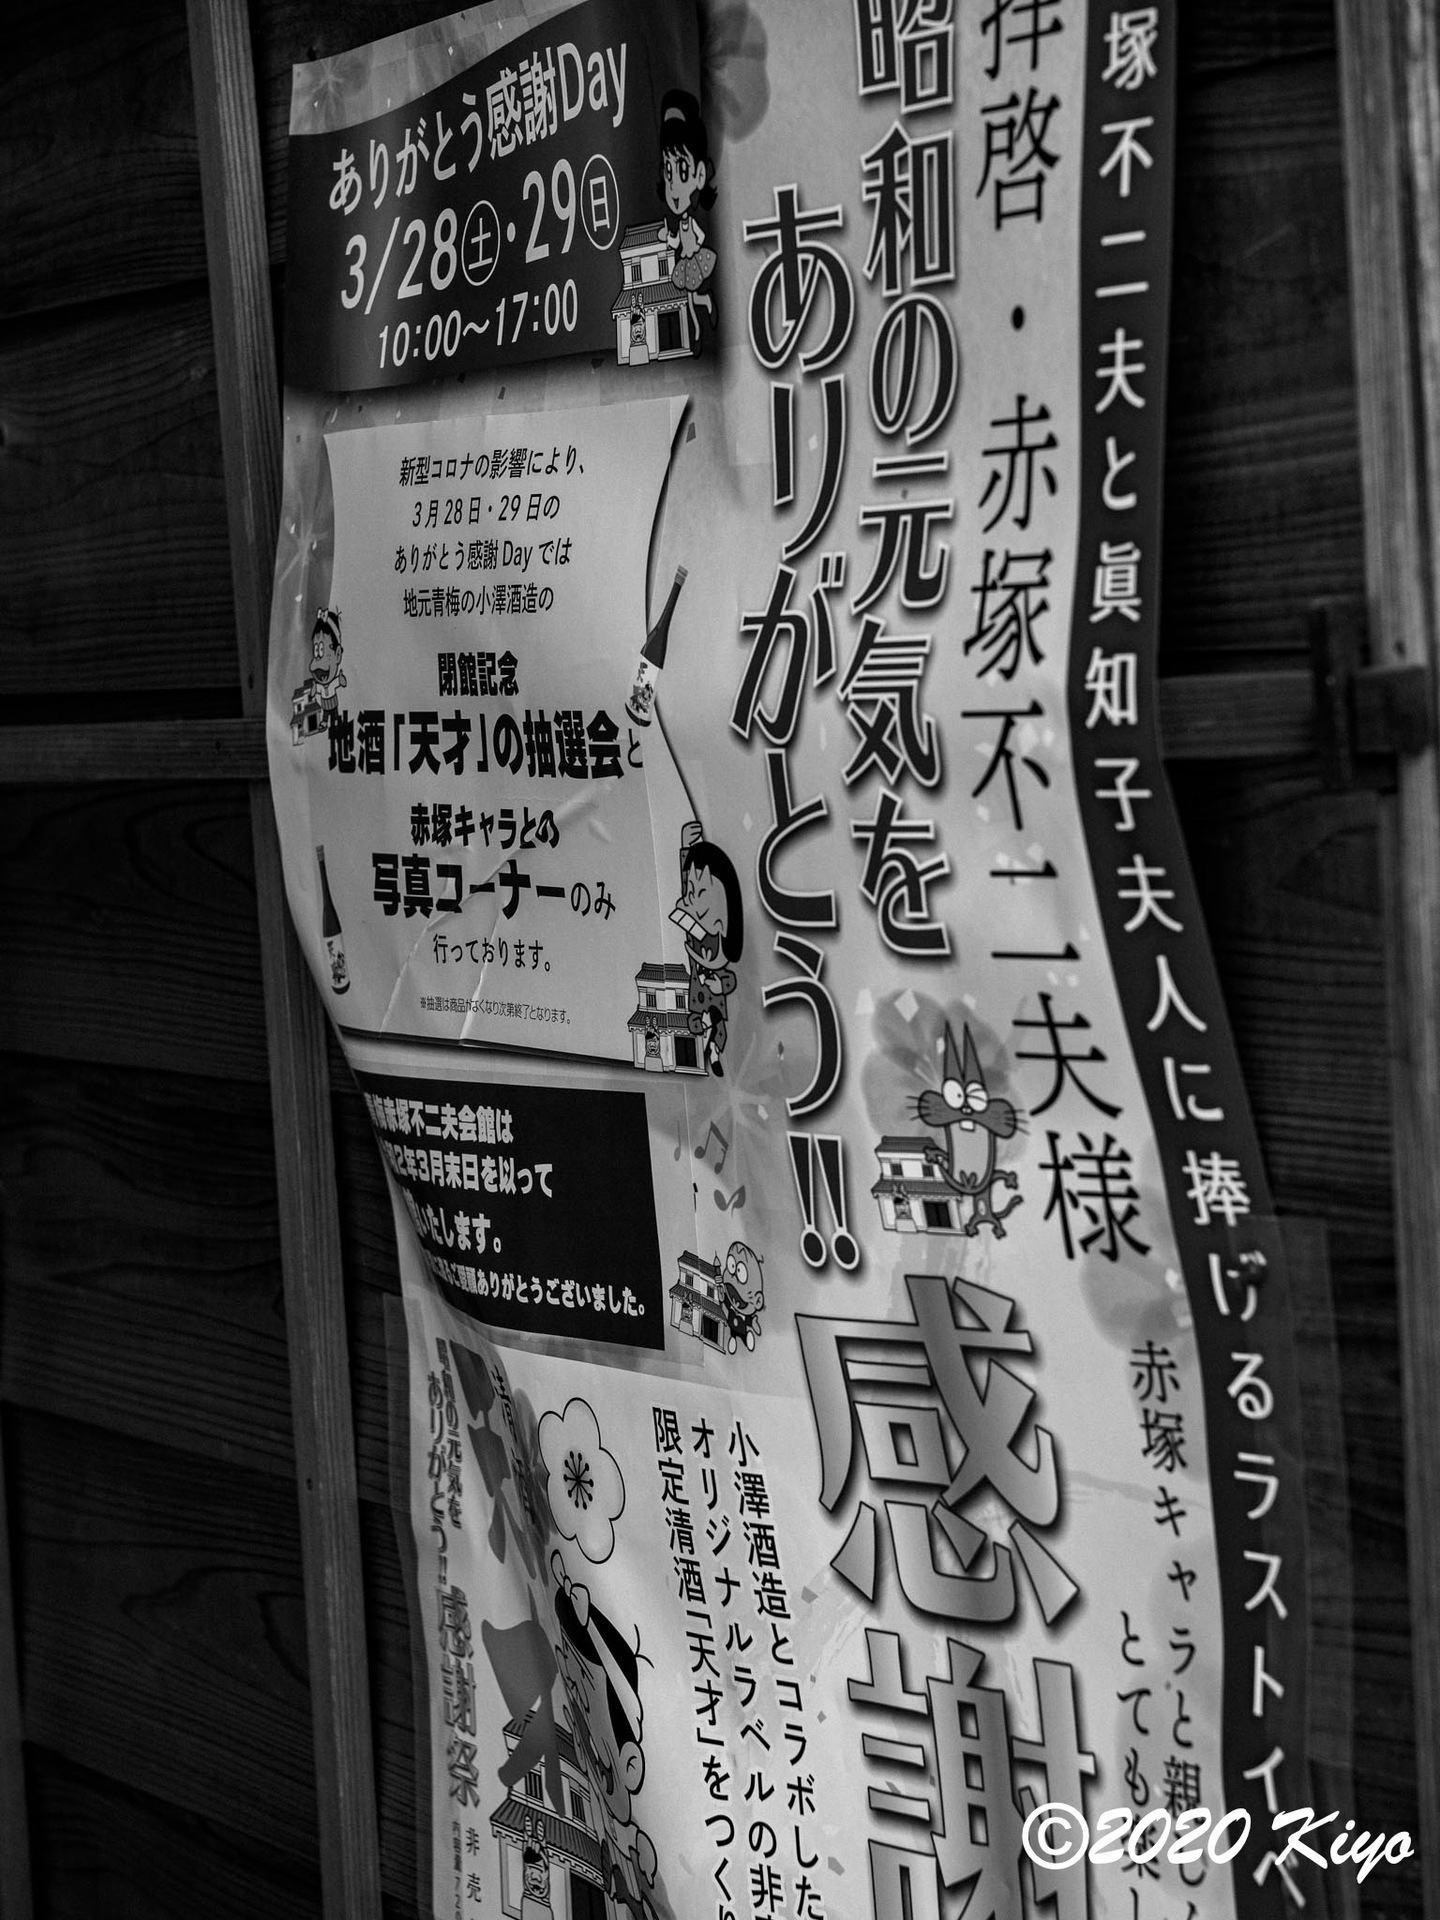 塚不二夫と眞知子夫人に捧げるラストイベ
拝啓・赤塚不二夫様
昭和の元気を
ありがとう!!
感謝
赤塚キャラと親し
とても楽し
ありがとう感謝Day
3/28㊏・29㊐
10:00〜17:00
新型コロナの影響により、
3月28日・29日の
ありがとう感謝Dayでは
地元青梅の小澤酒造の
閉館記念
地酒「天才」の抽選会と
赤塚キャラとの
写真コーナーのみ
行っております。
※抽選は商品がなくなり次第終了となります。
梅赤塚不二夫会館は
2年3月末日を以って
いたします。
ご愛顧ありがとうございました。
小澤酒造とコラボした
オリジナルラベルの非
限定清酒「天才」をつくり
青梅
昭和の元気を
ありがとう!!
感謝祭
非売
内容量720
©2020 Kiyo